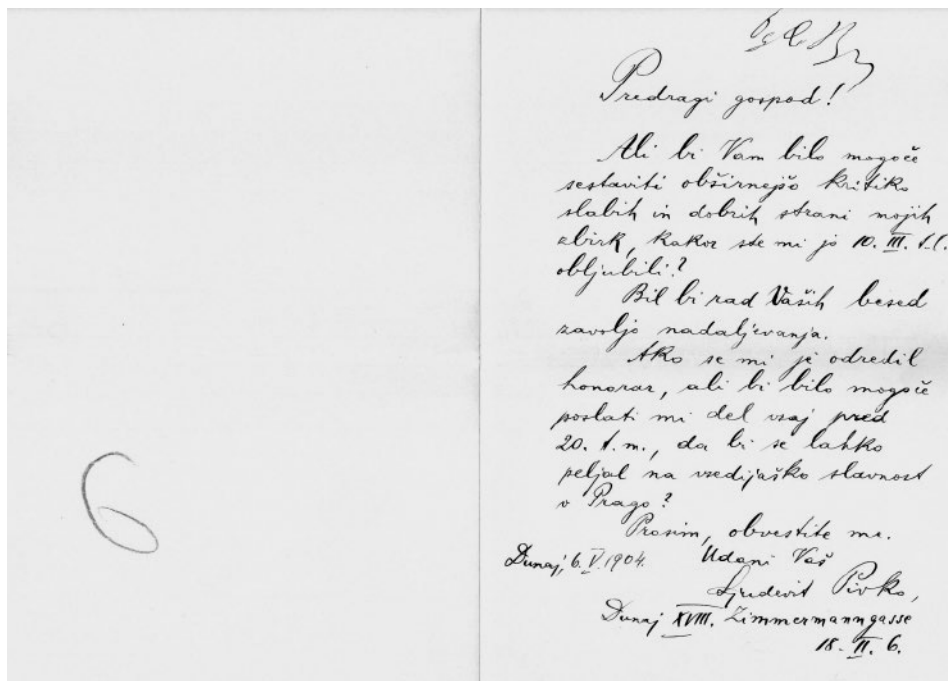 6
Predragi gospod!
Ali bi Vam bilo mogoče
sestaviti obširnejšo kritiko
slabih in dobrih strani mojih
zbirk, kakor ste mi jo 10. III. t.l.
obljubili?
Bil bi rad Vaših besed
zavoljo nadaljevanja.
Ako se mi je odredil
honorar, ali bi bilo mogoče
poslati mi del vsaj pred
20. t.m., da bi se lahko
peljal na vsedijaško slavnost
v Prago?
Prosim, obvestite me.
Dunaj, 6. V. 1904. Udani Vaš
Ljudevit Pivko,
Dunaj XVIII. Zimmermanngasse
18. II. 6.